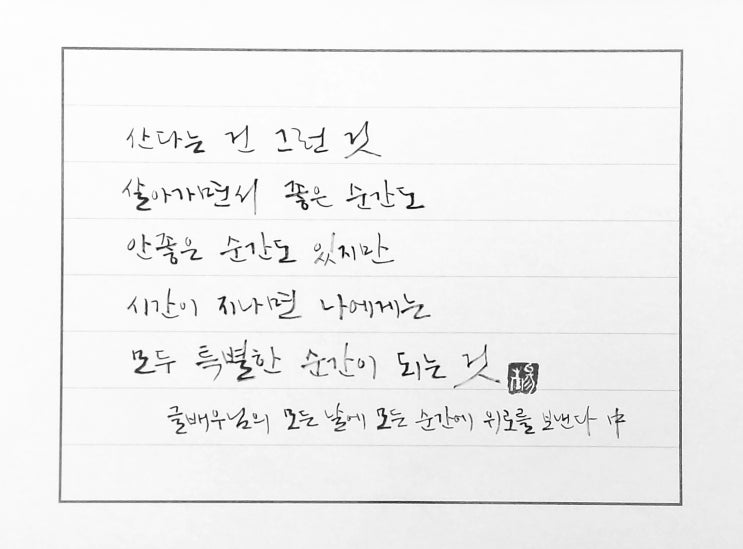 산다는 건 그런 것
살아가면서 좋은 순간도
안좋은 순간도 있지만
시간이 지나면 나에게는
모두 특별한 순간이 되는 것
글배우님의 모든 날에 모든 순간에 위로를 보낸다 中